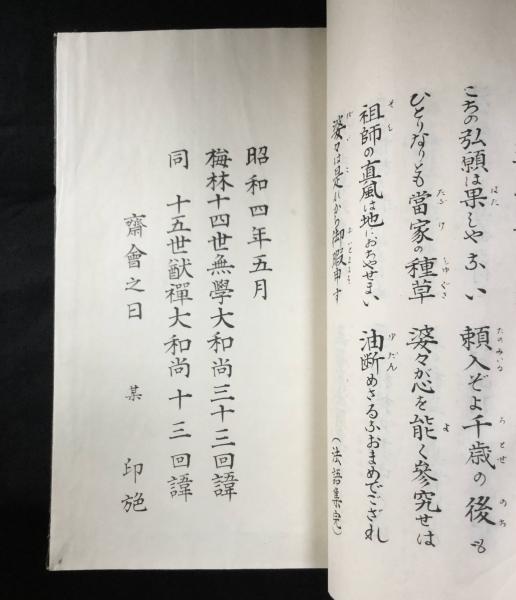 こちの弘願は果しやふい　頼入ぞよ千歳の後も
ひとりなりとも當家の種草　婆々が心を能く參究せは
祖師の真風は地におちやせまい　油断めさるなおまめでござれ
婆々は是から御暇申す　（法語集完）
昭和四年五月
梅林十四世無學大和尚三十三回諱
同　十五世猷禪大和尚十三回諱
齋會之日　某　印施